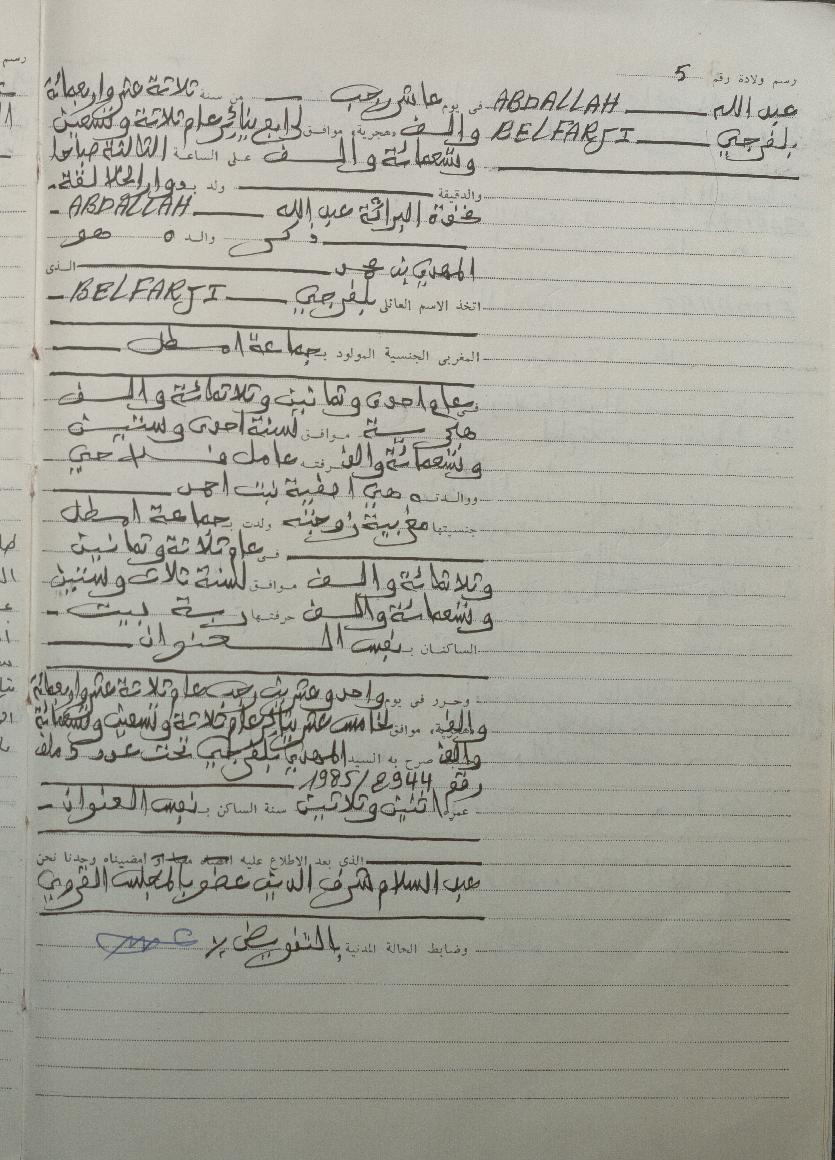 رسم ولادة رقم 5
عبد الله ABDALLAH
بلفرجي BELFARJI
فى يوم عاشر رجب من سنة ثلاثة عشر واربعمائة
والف هجرية، موافق لرابع يناير عام ثلاثة وتسعين
وتسعمائة والف على الساعة الثالثة صباحا
والدقيقة ولد بـ دوار الخلالفة
عبد الله ABDALLAH
ذكر والده هو
المهدي بن محمد الذى
اتخذ الاسم العائلى بلفرجي BELFARJI
المغربى الجنسية المولود بـ جماعة
فى عام احدى وثمانين وثلاثمائة والف
هجرية موافق لسنة احدى وستين
وتسعمائة والف حرفته عامل فلاحي
ووالدته هي بنت احمد
جنسيتها مغربية زوجته ولدت بـ جماعة
فى عام ثلاثة وثمانين
وثلاثمائة والف موافق لسنة ثلاث وستين
وتسعمائة والف حرفتها ربة بيت
الساكنان بـ نفس العنوان
وحرر فى يوم واحد وعشرين رجب عام ثلاثة عشر واربعمائة
والف هجرية، موافق لخامس عشر يناير عام ثلاثة وتسعين وتسعمائة
والف صرح به السيد المهدي بلفرجي تحت عدد 5 ملف
رقم 1985/2944
عمره اثنين وثلاثين سنة الساكن بـ نفس العنوان
الذى بعد الاطلاع عليه امضيناه وحدنا نحن
عبد السلام شرف الدين عضو بالمجلس القروي
وضابط الحالة المدنية بالتفويض